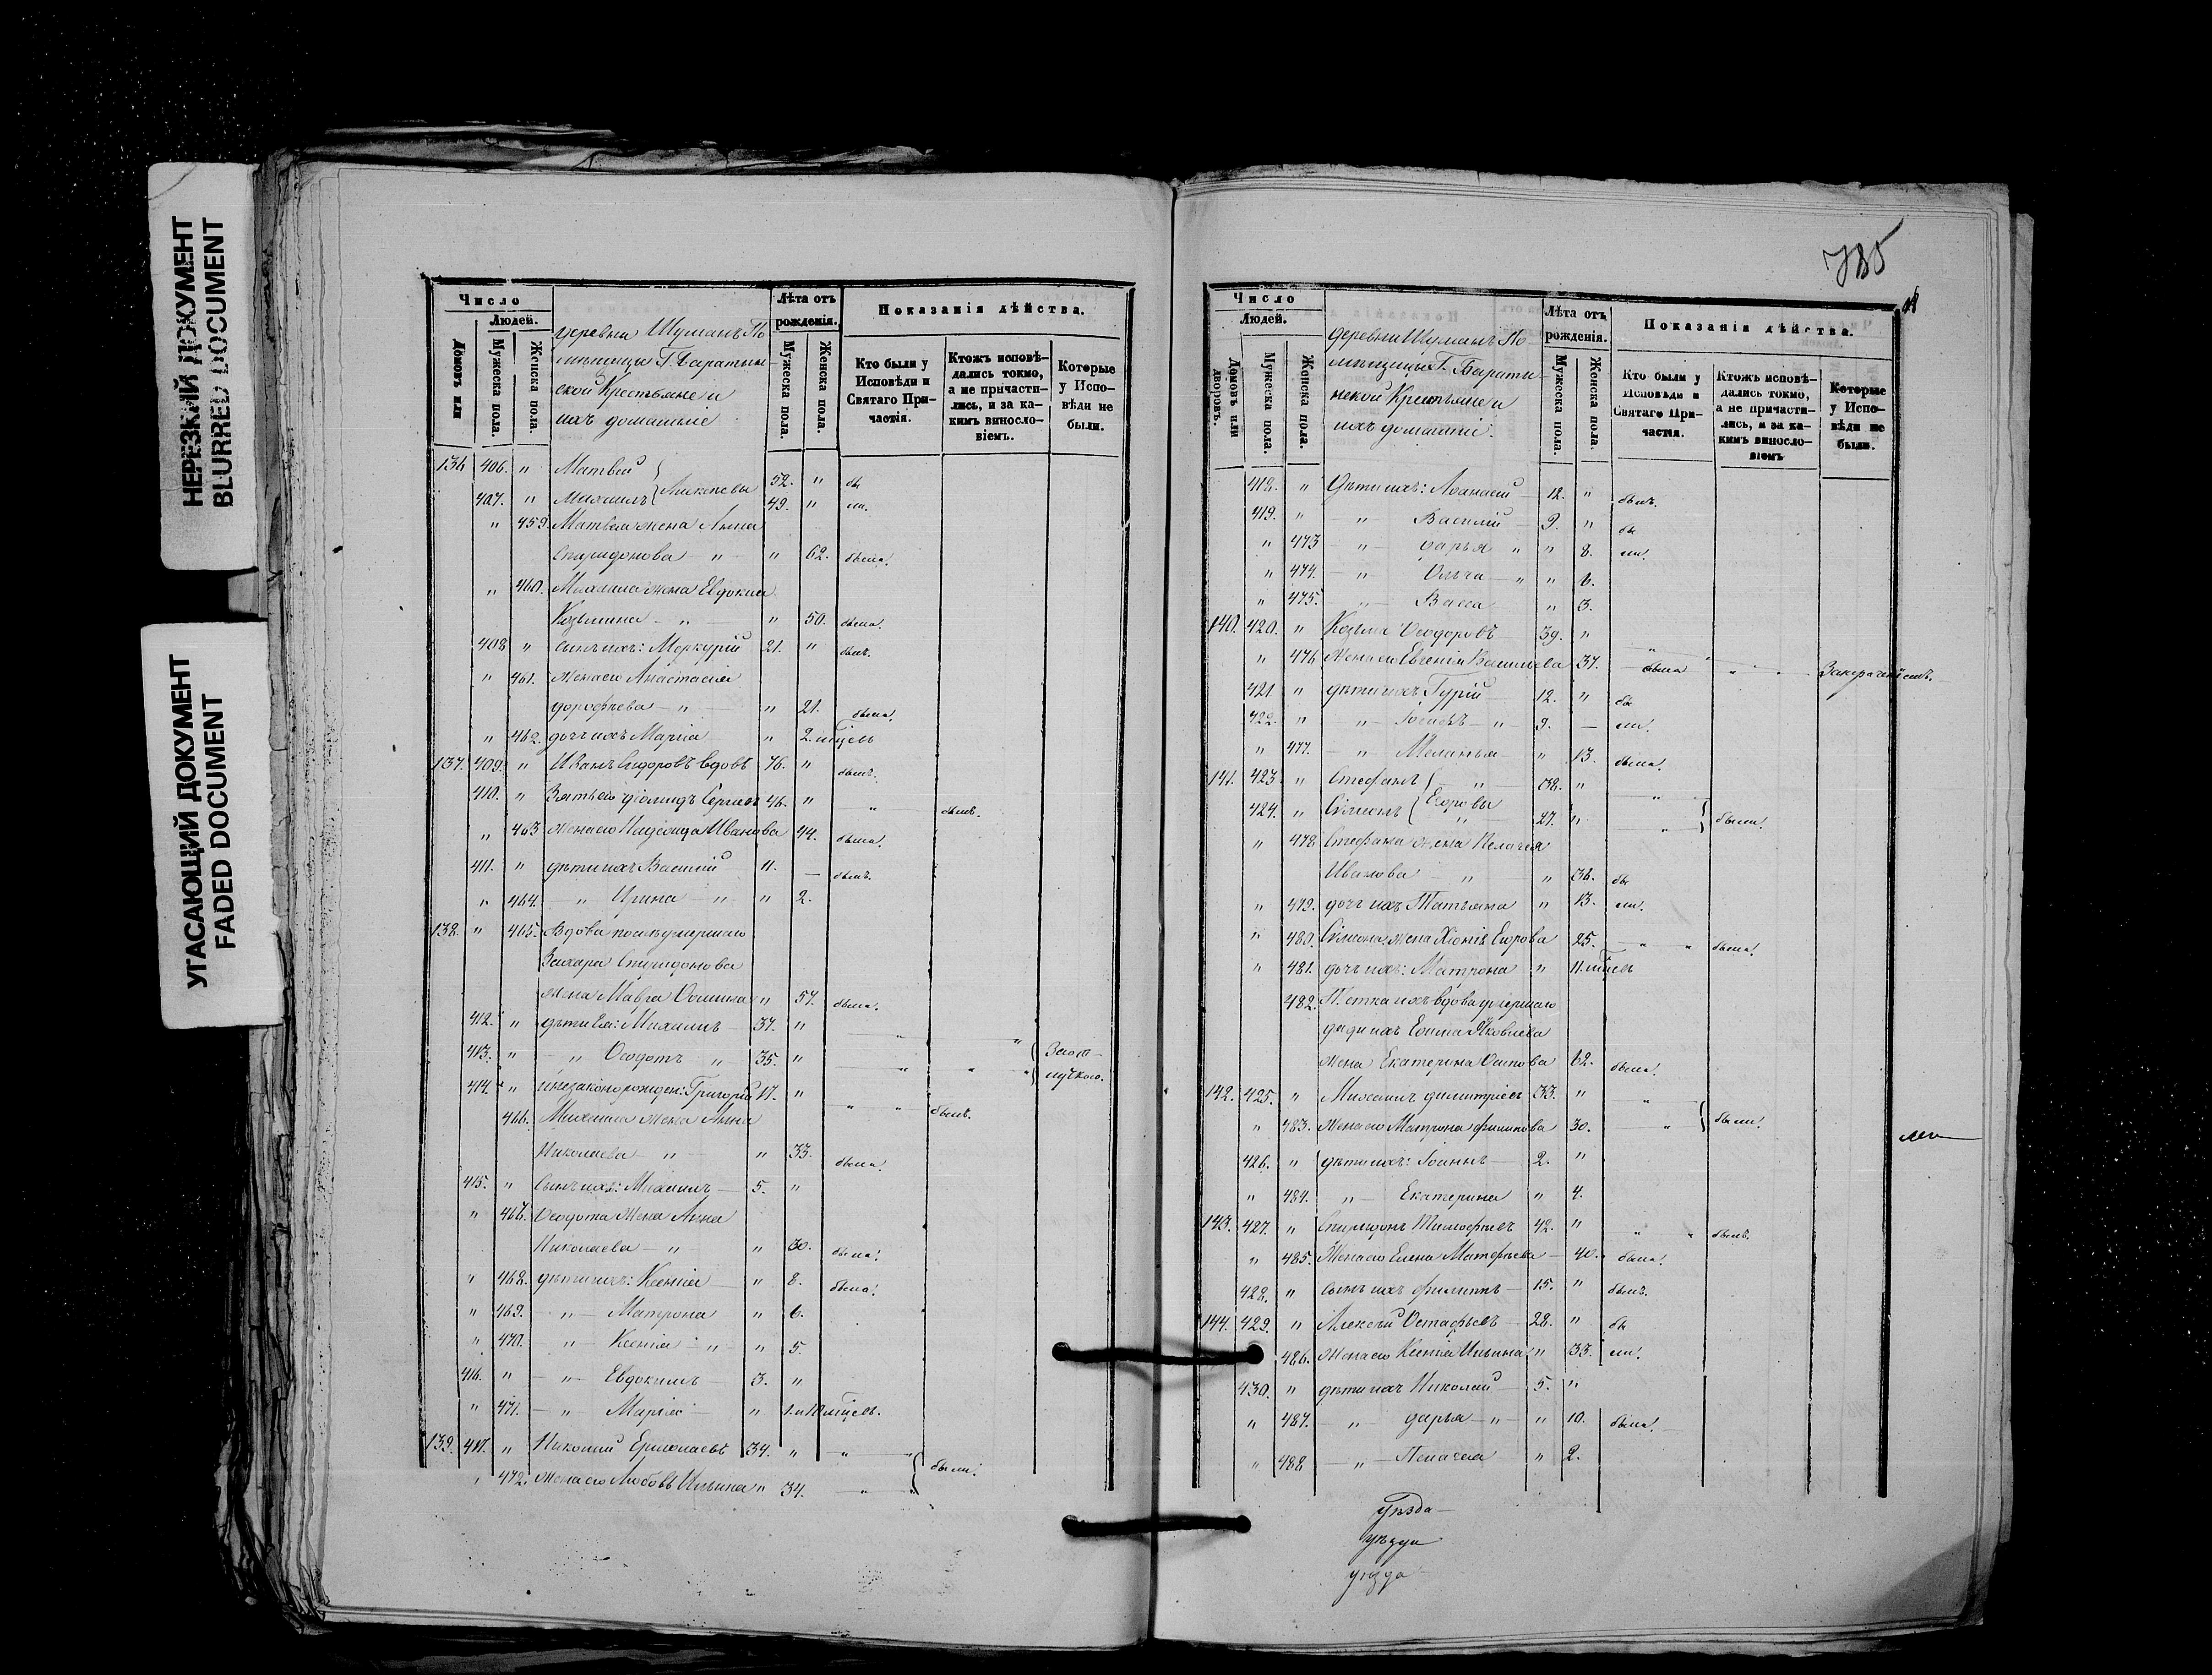 НЕРЕЗКИЙ ДОКУМЕНТ
BLURRED DOCUMENT
УГАСАЮЩИЙ ДОКУМЕНТ
FADED DOCUMENT
Число
Людей.
Домовъ или
Мужеска пола.
Женска пола.
деревни Шуманъ По
мѣщицы Г. Баратын-
ской Крестьяне и
ихъ домашніе
Лѣта отъ рожденія.
Мужеска пола.
Женска пола.
Показанія дѣйства.
Кто были у Исповѣди и Святаго Причастія.
Ктожъ исповѣ-
дались токмо,
а не причасти-
лись, и за ка-
кимъ винослo-
віемъ.
Которые
у Испо-
вѣди не
были.
136 406. " Матвей 52. " бы
407. " Михаилъ 49. " ли.
" 459. Матвея жена Анна
Спиридонова — " — " 62. была.
" 460. Михаила жена Евдокия
Козьмина — " — " 50. была.
408 " сынъ ихъ: Меркурій 21. " былъ.
" 461. жена его Анастасія
дорофѣева — " — " 21. была.
" 462. дочь ихъ Марія " 2.
137. 409. " Иванъ Сидоровъ вдовъ 76. " былъ.
410. " Зять его Діомидъ Сергѣевъ 46. " " былъ.
" 463 жена его Иванова 44. была.
411. " дѣти ихъ Василій 11. — былъ.
" 464. — " Ирина — " — " 2.
138. " 465. Вдова послѣ умершаго
Захара Спиридонова
жена Мавра Фомина " 57. была.
412. " дѣти Ея: Михаилъ — 37. "
413. " — " Ѳеодотъ " 35. " За от-
414. " и незаконорожден: Григорій 17. " " " былъ.
лучкою.
466. Михаила жена Анна
Николаева — " — " 33. была.
415. " Сынъ ихъ: Михаилъ — 5. "
" 467. Ѳеодота жена Анна
Николаева — " — " 30. была.
" 468. дѣти ихъ: Ксенія — " 8. была.
" 469. — " — Матрона " 6.
" 470. — " — Ксенія — " — " 5.
416. " — " — Евдокимъ — 3. "
" 471. — " Марія — "
139. 417. " Николай Ермолаевъ 34. " были.
" 472. жена его Любовь Ильина " 34.
785
Число
Людей.
Домовъ или дворовъ.
Мужеска пола.
Женска пола.
деревни Шуманъ По
мѣщицы Г. Баратын-
ской Крестьяне и
ихъ домашніе.
Лѣта отъ рожденія.
Мужеска пола.
Женска пола.
Показанія дѣйства.
Кто были у
Исповѣди и
Святаго При-
частія.
Ктожъ исповѣ-
дались токмо,
а не причасти-
лись, и за ка-
кимъ винослo-
віемъ
Которые
у Испо-
вѣди не
были.
418. " Дѣти ихъ: Аѳанасій — 12. " былъ.
419. " — " Василій — 9. " бы
" 473 — " — дарья " " 8. ли.
" 474. — " — Ольга — " " 6.
" 475. — " — Васса — " 3.
140. 420. " Козьма Ѳеодоровъ 39. "
" 476 Жена его Евгенія Васильева 37. была
421. " дѣти ихъ Гурій 12. " бы
422. " — " — — " — 9. — ли.
" 477. — " — Меланья — " 13. была.
141. 423. " Стефанъ " 38. "
424. " Симонъ Егоровы " 27. " были.
" 478 Стефана жена Пелагея
Иванова — " — " 36. бы
" 479. дочь ихъ Татьяна " 13. ли.
" 480. Симона жена Хіонія Егорова 25. — " " была.
" 481. дочь ихъ: Матрона "
482. Тетка ихъ вдова умершаго
дяди ихъ Яковлева
жена Екатерина Осипова 62. была.
142. 425. " Михаилъ димитріевъ 33. " "
" 483. Жена его Матрона филипова 30. " были.
426. " дѣти ихъ: Іоаннъ — 2. "
" 484. " — Екатерина " 4.
143. 427. " Спиридонъ Тимофѣевъ 42. " " " былъ.
" 485. Жена его Елена Матфѣева — 40. была.
428. " сынъ ихъ филиппъ — 15. " былъ.
144. 429. " Алексѣй Остафьевъ — 28. " бы
486. Жена его Ксенія Ильина " 33. ли.
430. " дѣти ихъ Николай — 5. "
" 487. — " — дарья — " — " 10. была.
" 488 — " — Пелагея " 2.
уѣзда
уѣзда
уѣзда